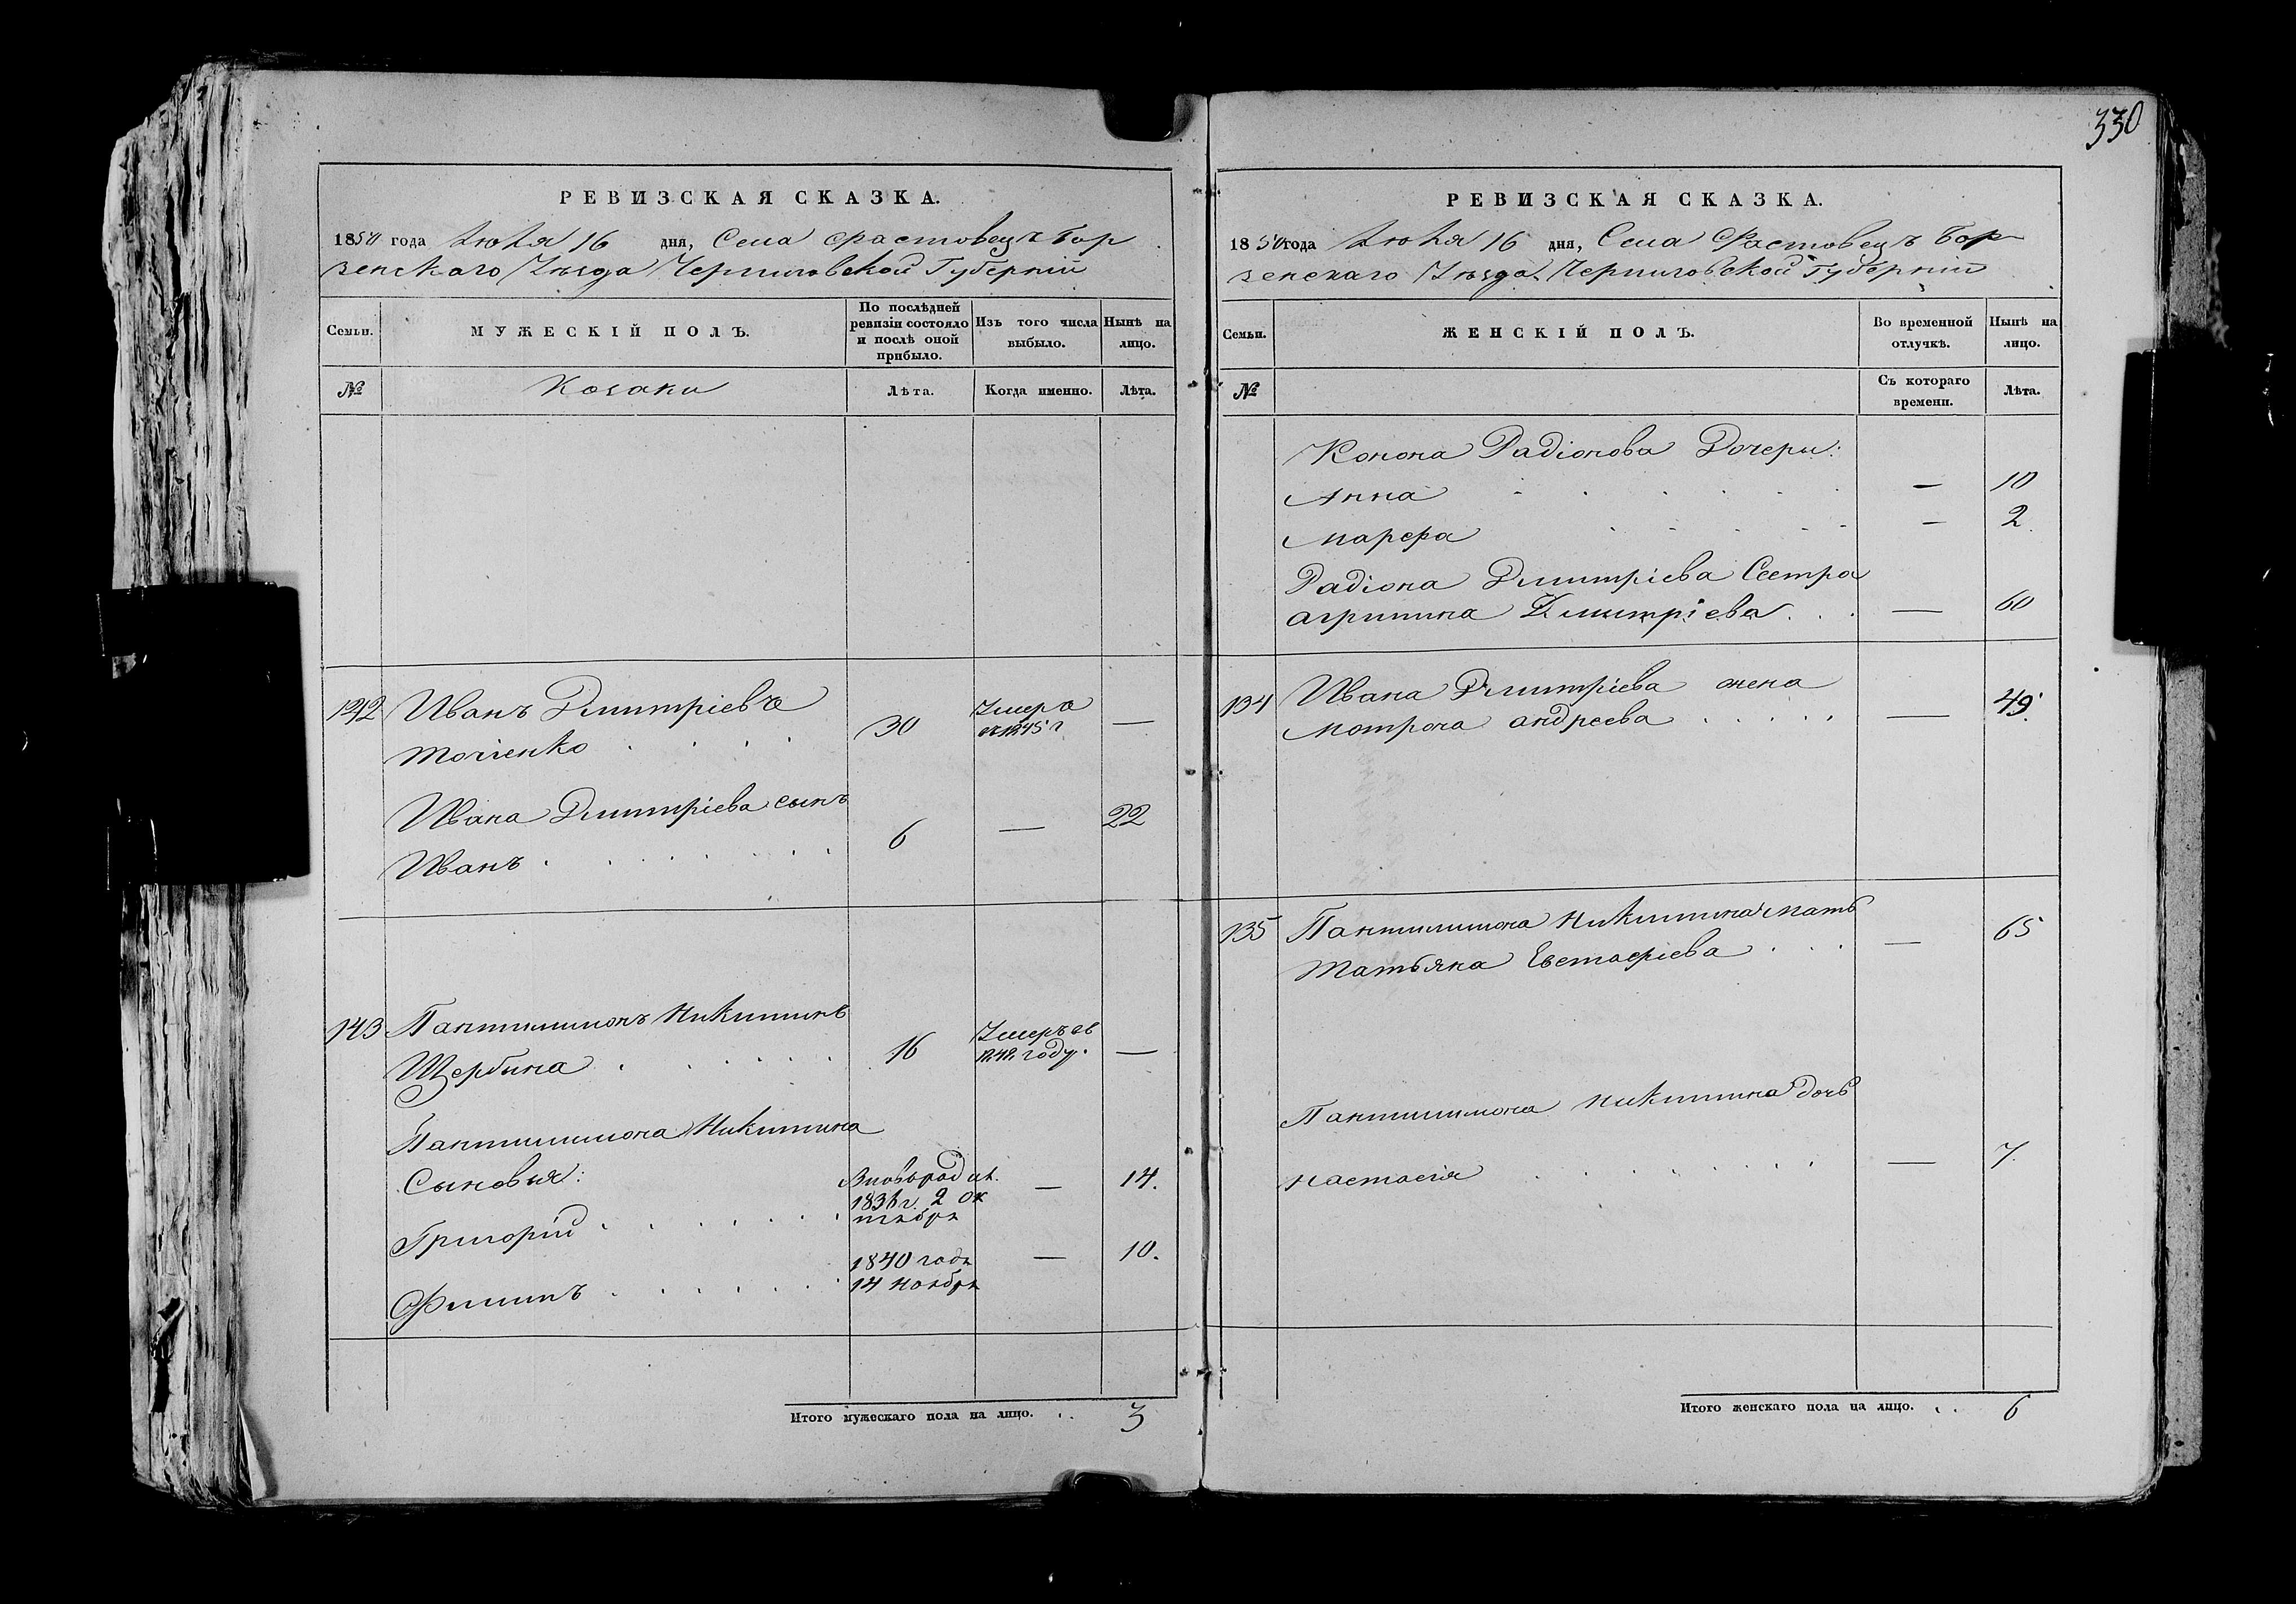 330
РЕВИЗСКАЯ СКАЗКА.
1850 года Июля 16 дня, Села Фастовецъ Бор
зенскаго Уѣзда Черниговской Губерніи
Семьи.
МУЖЕСКІЙ ПОЛЪ.
По послѣдней
ревизіи состояло
и послѣ оной
прибыло.
Изъ того числа
выбыло.
Нынѣ на
лицо.
№
Козаки
Лѣта.
Когда именно.
Лѣта.
142 Иванъ Дмитріевъ
30 Умеръ —
1845 г
Ивана Дмитріева сынъ
Иванъ . . . . . . . 6 — 22
143 Пантилимонъ Никитинъ
Щербина . . . . . 16 Умеръ въ —
году.
Пантилимона Никитина
Сыновья:
Григорій . . . . . . Вновьрод — 14.
1836 г. 2 Ок
тября
Филипъ . . . . . . 1840 года — 10.
14 Ноября
Итого мужескаго пола на лицо. . . 3
РЕВИЗСКАЯ СКАЗКА.
1850 года Июля 16 дня, Села Фастовецъ Бор
зенскаго Уѣзда Черниговской Губерніи
Семьи.
ЖЕНСКІЙ ПОЛЪ.
Во временной
отлучкѣ.
Нынѣ на
лицо.
№
Съ котораго
времени.
Лѣта.
Конона Радіонова Дочери:
Анна . . . . . . — 10
Марфа . . . . . — 2.
Радіона Дмитріева Сестра
Агрипина Дмитріева . . . — 60
134 Ивана Дмитріева жена
Мотрона Андреева . . . . . — 49.
135 Пантилимона Никитина мать
Татьяна Евстафіева . . . — 65
Пантилимона Никитина дочь
Настасія . . . . . . . . — 7.
Итого женскаго пола на лицо. . . 6